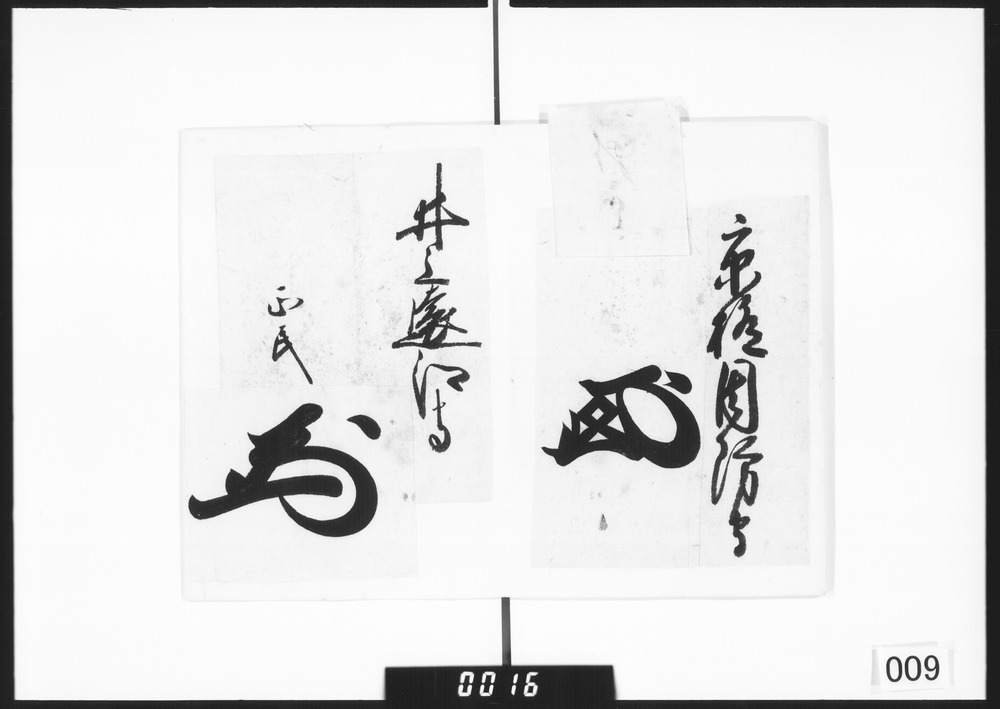 京極周防守
井上遠江守
正民
0016
009